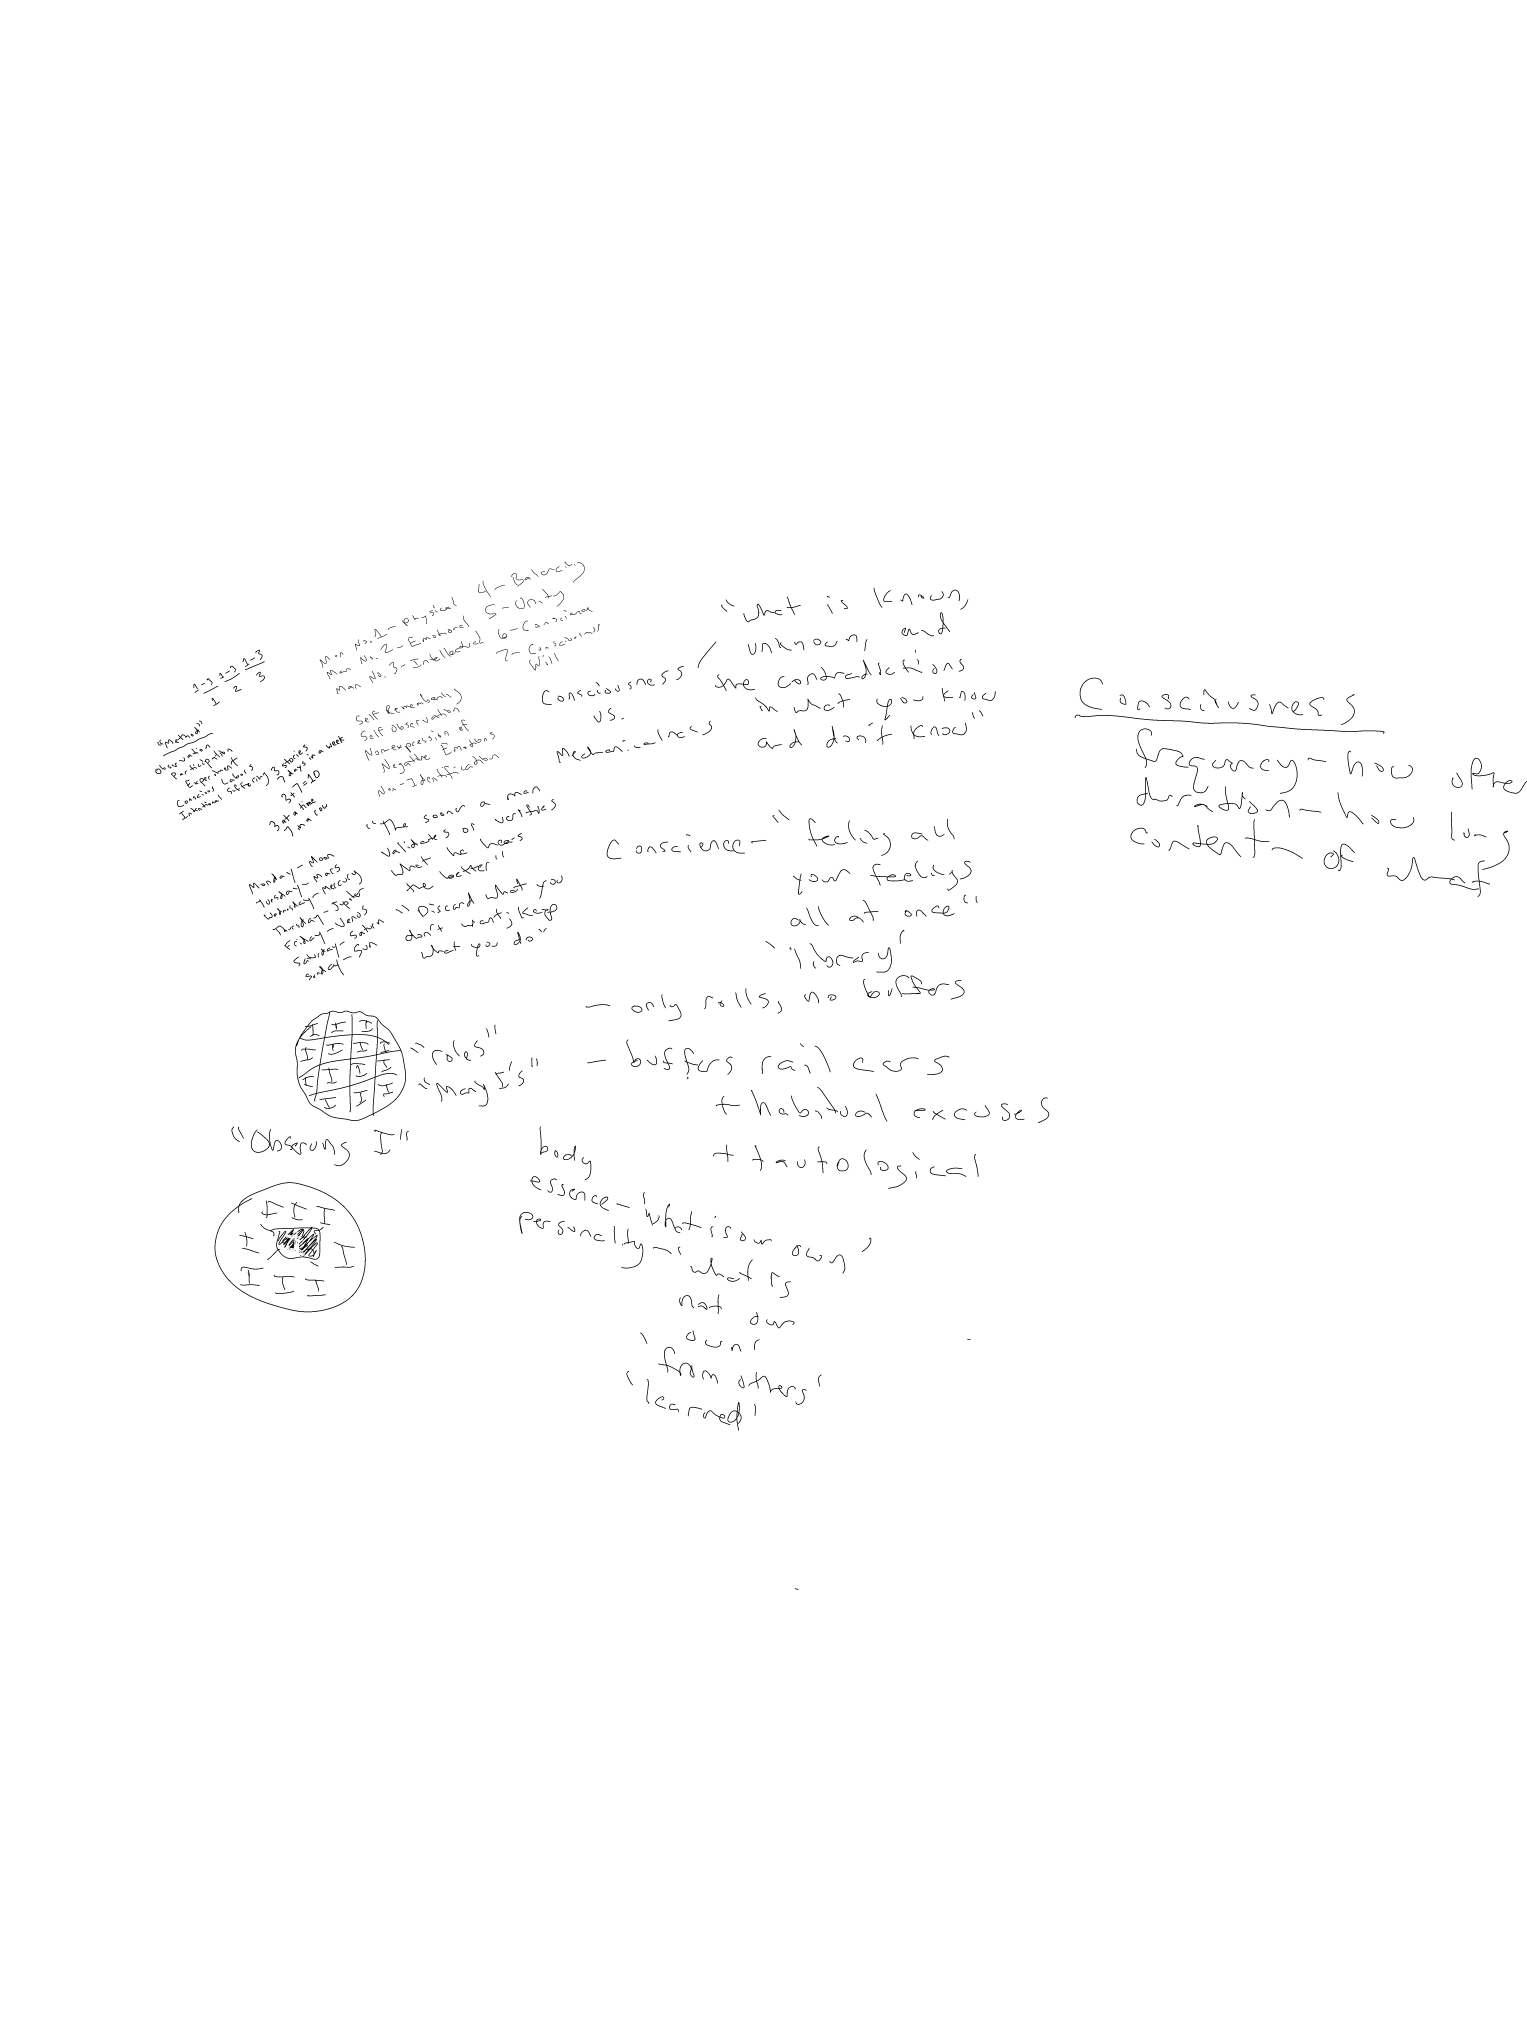 1-3 1-3 1-3
1 2 3
"Method"
Observation
Participation
Experiment
Conscious Labors
Intentional Suffering
3 stories
7 days in a week
3+7=10
3 at a time
7 in a row
Man No. 1 - Physical
Man No. 2 - Emotional
Man No. 3 - Intellectual
4 - Balancing
5 - Unity
6 - Conscience
7 - Consciousness
Will
Self Remembering
Self Observation
Non-expression of
Negative Emotions
Non-Identification
"The sooner a man
validates or verifies
what he hears
the better"
"Discard what you
don't want; keep
what you do"
Monday - Moon
Tuesday - Mars
Wednesday - Mercury
Thursday - Jupiter
Friday - Venus
Saturday - Saturn
Sunday - Sun
I I I
I I I I
I I I I
I I I
"roles"
"Many I's"
"Observing I"
I I I
I I
I I I
Consciousness
vs.
Mechanicalness
"what is known,
unknown, and
the contradictions
in what you know
and don't know"
Conscience - "feeling all
your feelings
all at once"
'library'
- only rolls, no buffers
- buffers rail cars
+ habitual excuses
+ tautological
body
essence - 'what is our own'
personality - 'what is
not our
own'
'from others'
'learned'
Consciousness
frequency - how often
duration - how long
content - of what